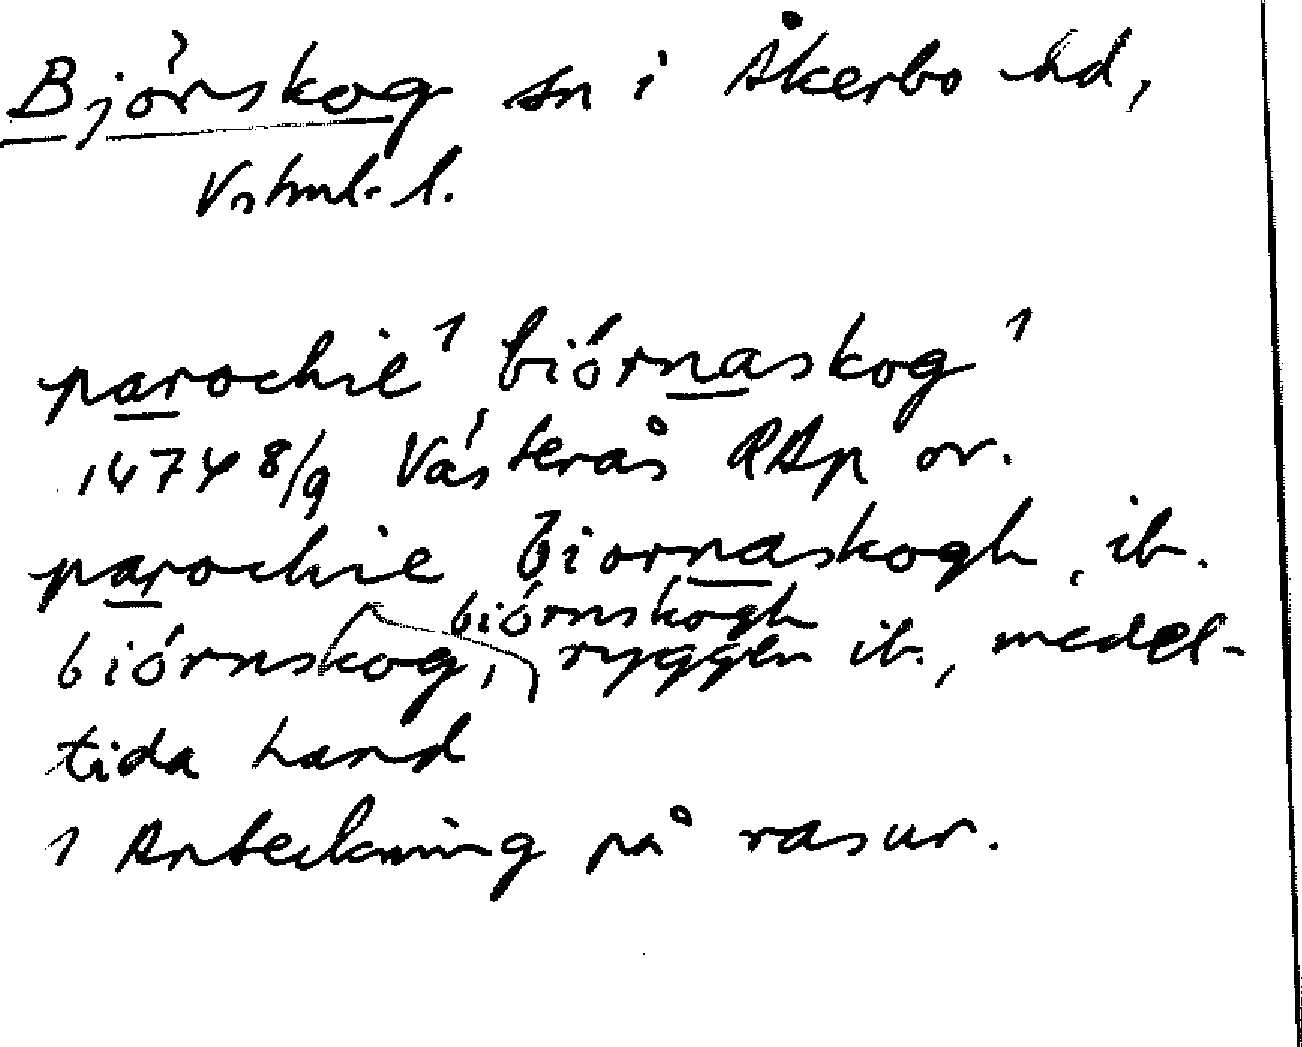 Björskog sn i Åkerbo hd,
Vstml. l.
parochie ¹ biórnaskog ¹
1474 8/9 Västerås RAp or.
parochie Biornaskogh, ib.
biórnskogh
biórnskog, ryggen ib., medel-
tida hand
1 Anteckning på rasur.